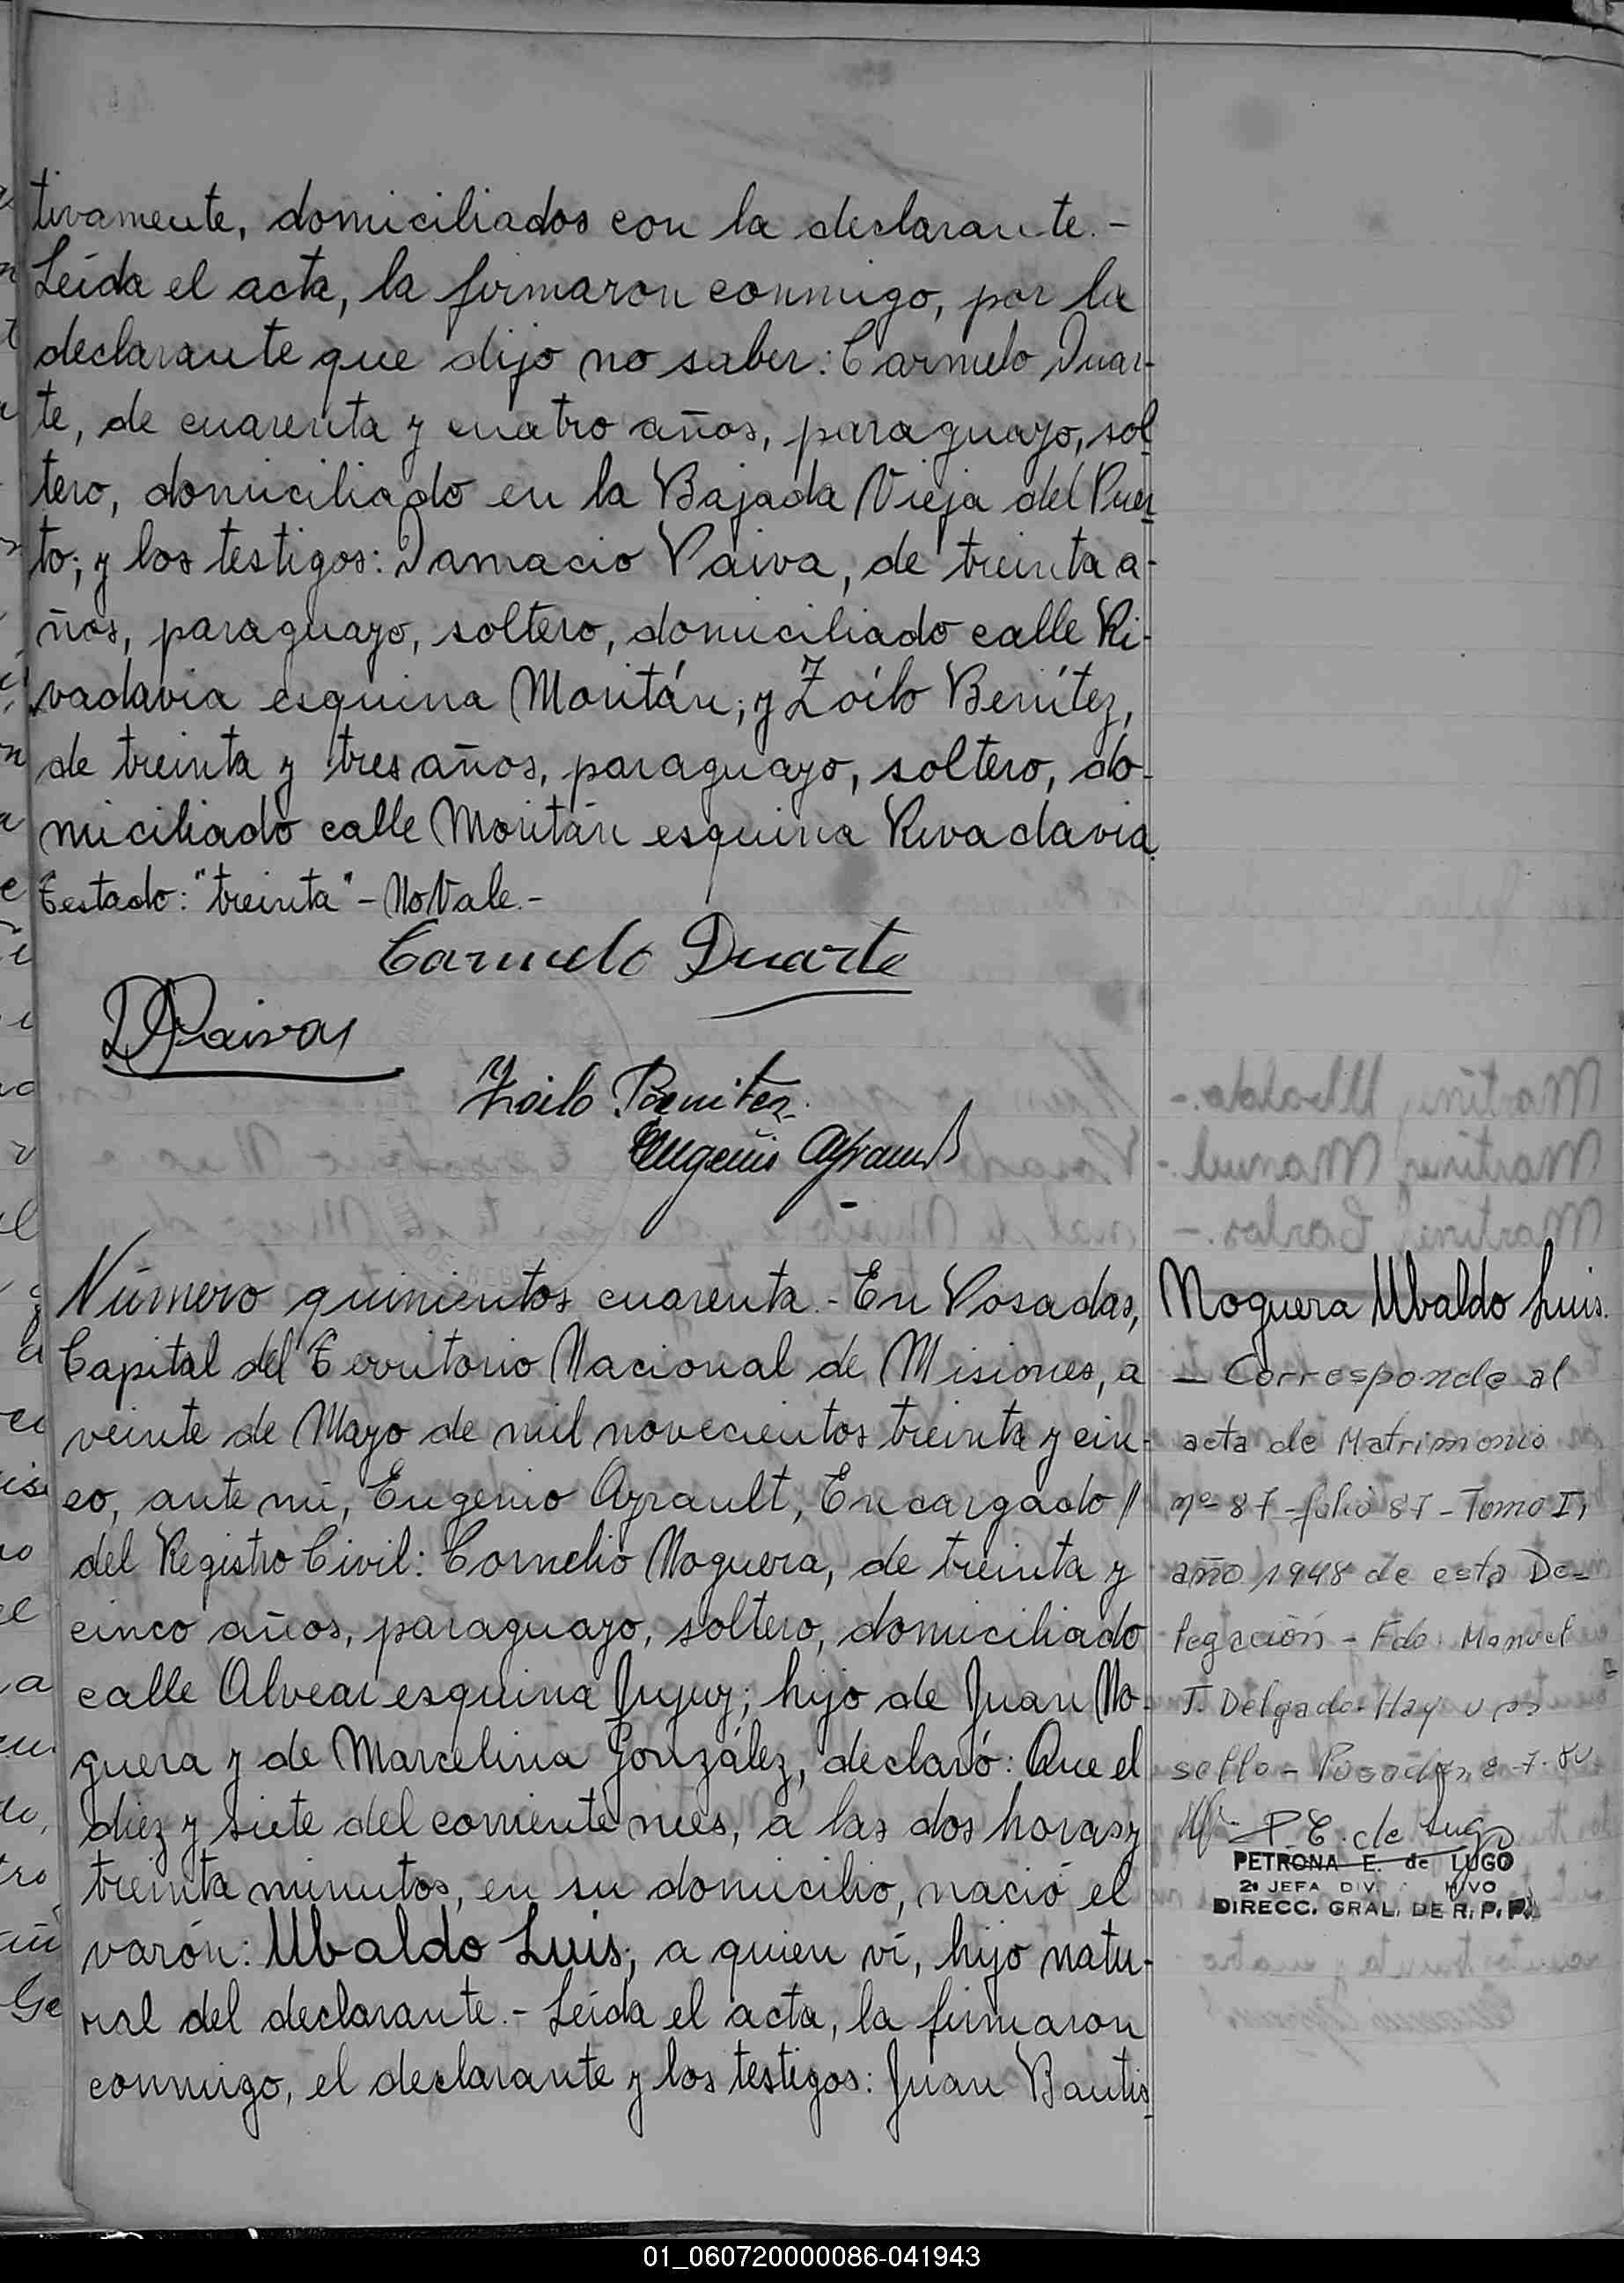 tivamente, domiciliados con la declarante.-
Leída el acta, la firmaron conmigo, por la
declarante que dijo no saber: Carmelo Duar-
te, de cuarenta y cuatro años, paraguayo, sol
tero, domiciliado en la Bajada Vieja del Puer
to; y los testigos: Damacio Paiva, de treinta a-
ños, paraguayo, soltero, domiciliado calle Ri-
vadavia esquina Moritán; y Zoílo Benítez,
de treinta y tres años, paraguayo, soltero, do-
miciliado calle Moritán esquina Rivadavia.
Testado: "treinta" - No Vale.-
Carmelo Duarte
D Paiva
Zoilo Benitez
Eugenio Ayrault
Número quinientos cuarenta.- En Posadas,
Capital del Territorio Nacional de Misiones, a
veinte de Mayo de mil novecientos treinta y cin-
co, ante mí, Eugenio Ayrault, Encargado //
del Registro Civil: Cornelio Noguera, de treinta y
cinco años, paraguayo, soltero, domiciliado
calle Alvear esquina Jujuy; hijo de Juan No-
guera y de Marcelina González, declaró: Que el
diez y siete del corriente mes, a las dos horas y
treinta minutos, en su domicilio, nació el
varón: Ubaldo Luis; a quien ví, hijo natu-
ral del declarante.- Leída el acta, la firmaron
conmigo, el declarante y los testigos: Juan Bautis
Noguera Ubaldo Luis.
- Corresponde al
acta de Matrimonio
nº 87 - folio 87 - Tomo I,
año 1948 de esta De-
legación - Fdo. Manuel
J. Delgado - Hay un
sello - Posadas, 8-7-
P. E. de Lugo
PETRONA E. de LUGO
2a JEFA DIV.
DIRECC. GRAL. DE R. P. P.
01_060720000086-041943